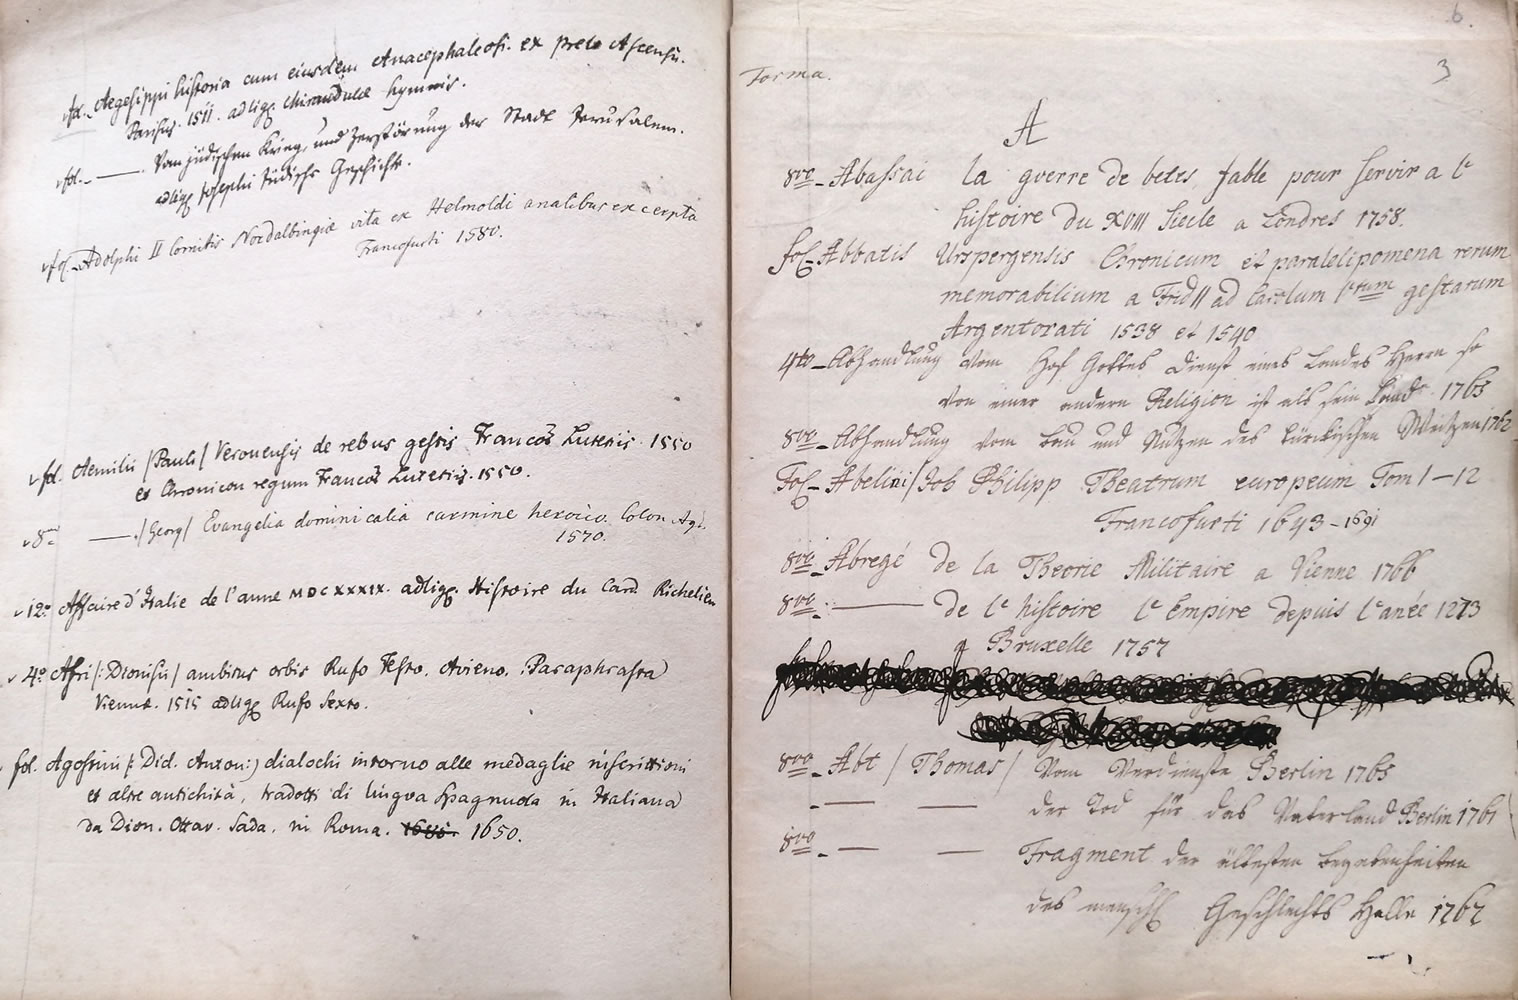 fol. Aegesippi historia cum eiusdem Anacephaleosi. ex prelo Ascensii.
Parisiis. 1511. adligg. Mirandulae hymnis.
fol. — . Vom jüdischen Krieg, und Zerstörung der Stadt Jerusalem.
adligg Josephi Jüdische Geschichte.
fol. Adolphi II Comitis Nordalbingiae vita ex Helmoldi analibus excerpta
Francofurti 1580.
fol. Aemilii /Pauli/ Veronensis de rebus gestis Francor̃ Lutetiis. 1550
et Chronicon regum Francor̃ Lutetiis. 1550.
8° — . /Georg/ Evangelia dominicalia carmine heroico. Colon. Agr.
1570.
12° Affaire d'Italie de l'anne MDCXXXIX. adligg. Histoire du Card Richelieu
4° Afri /: Dionisii / ambitus orbis Rufo Festo. Avieno. Paraphrasta
Viennae. 1515 adligg Rufo Sexto.
fol. Agostini /: Did. Anton:) dialochi intorno alle medaglie inscrittioni
et altre antichità, tradotti di lingva Spagnuola in Italiana
da Dion. Ottav. Sada. in Roma. 1650.
6.
3
Forma.
A
8vo Abassai la guerre de betes, fable pour servir a le
histoire du XVIII Siecle a Londres 1758.
fol Abbatis Urspergensis Chronicum et paralelipomena rerum
memorabilium a Frid II ad Carolum gestarum
Argentorati 1538 et 1540
4to Abhandlung vom Hof Gottes Dienst eines Landes Herrn so
von einer andern Religion ist als sein Land. 1763
8vo Abhandlung vom Bau und Nutzen des türckischen Weitzen 1762
Fol Abelini /Joh Philipp Theatrum europeum Tom 1–12
Francofurti 1643–1691
8vo Abregé de la Theorie Militaire a Vienne 1766
8vo. — de le histoire le Empire depuis le anée 1273
a Bruxelle 1757
8vo Abt / Thomas / Vom Verdienste Berlin 1765
— — der Tod für das Vaterland Berlin 1761
8vo — — Fragment der ältesten begebenheiten
des menschl Geschlechts Halle 1767